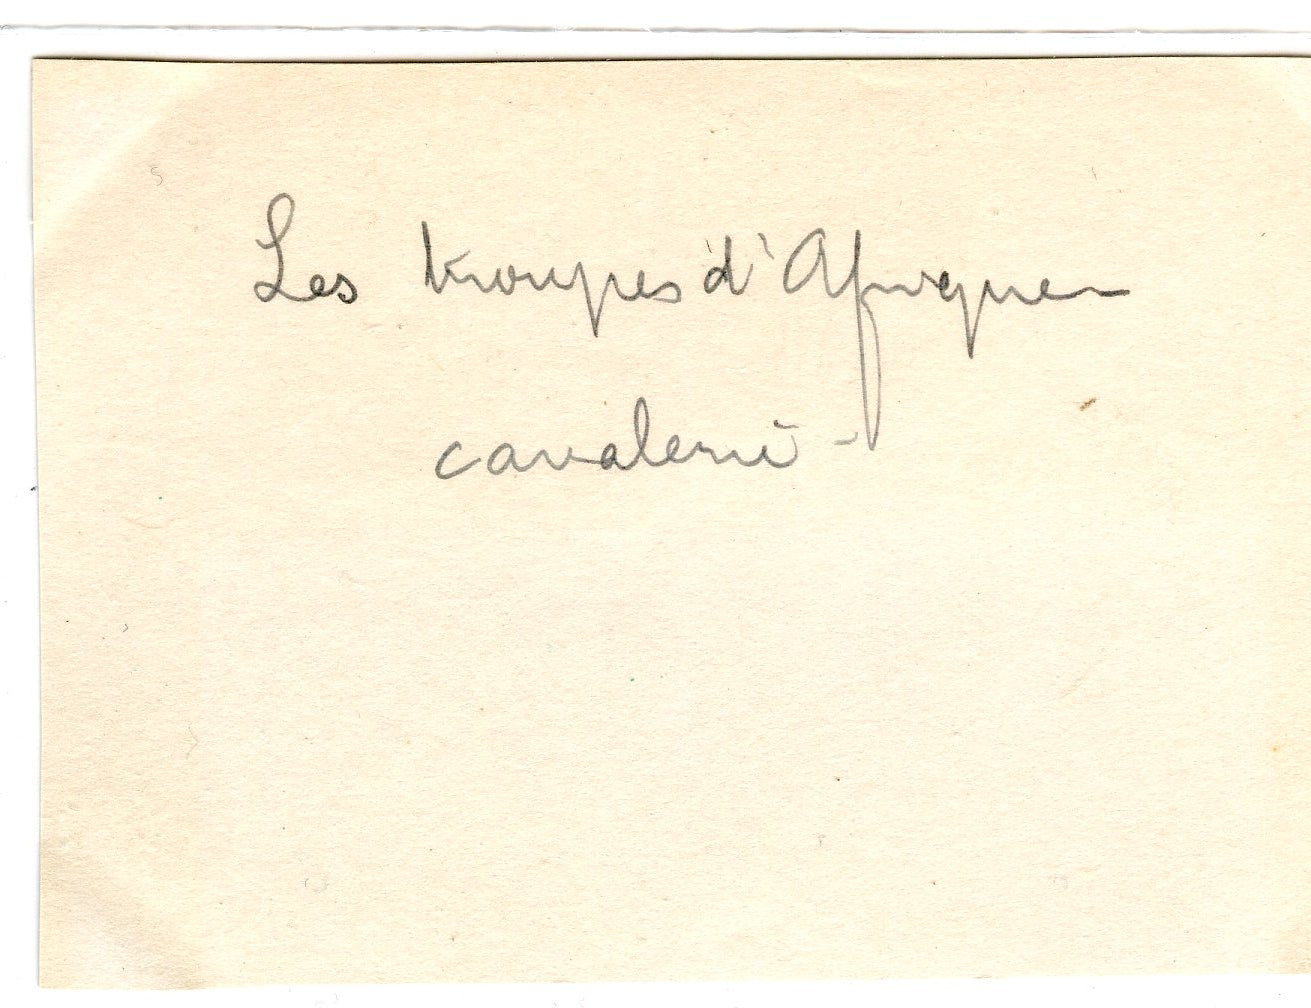 Les troupes d'Afrique -
cavalerie -